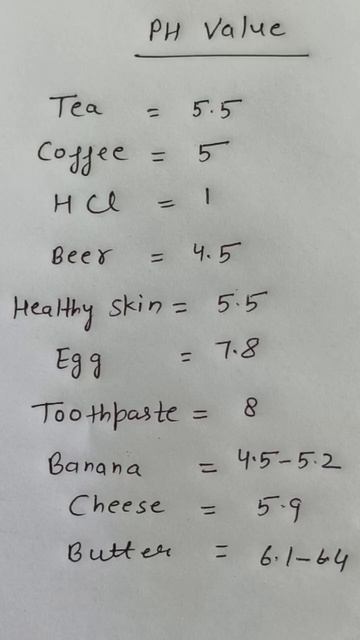 PH Value
Tea = 5.5
Coffee = 5
HCl = 1
Beer = 4.5
Healthy skin = 5.5
Egg = 7.8
Toothpaste = 8
Banana = 4.5-5.2
Cheese = 5.9
Butter = 6.1-6.4